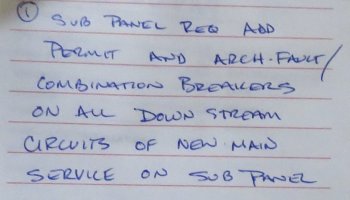 ① SUB PANEL REQ ADD
PERMIT AND ARCH-FAULT/
COMBINATION BREAKERS
ON ALL DOWN STREAM
CIRCUITS OF NEW MAIN
SERVICE ON SUB PANEL